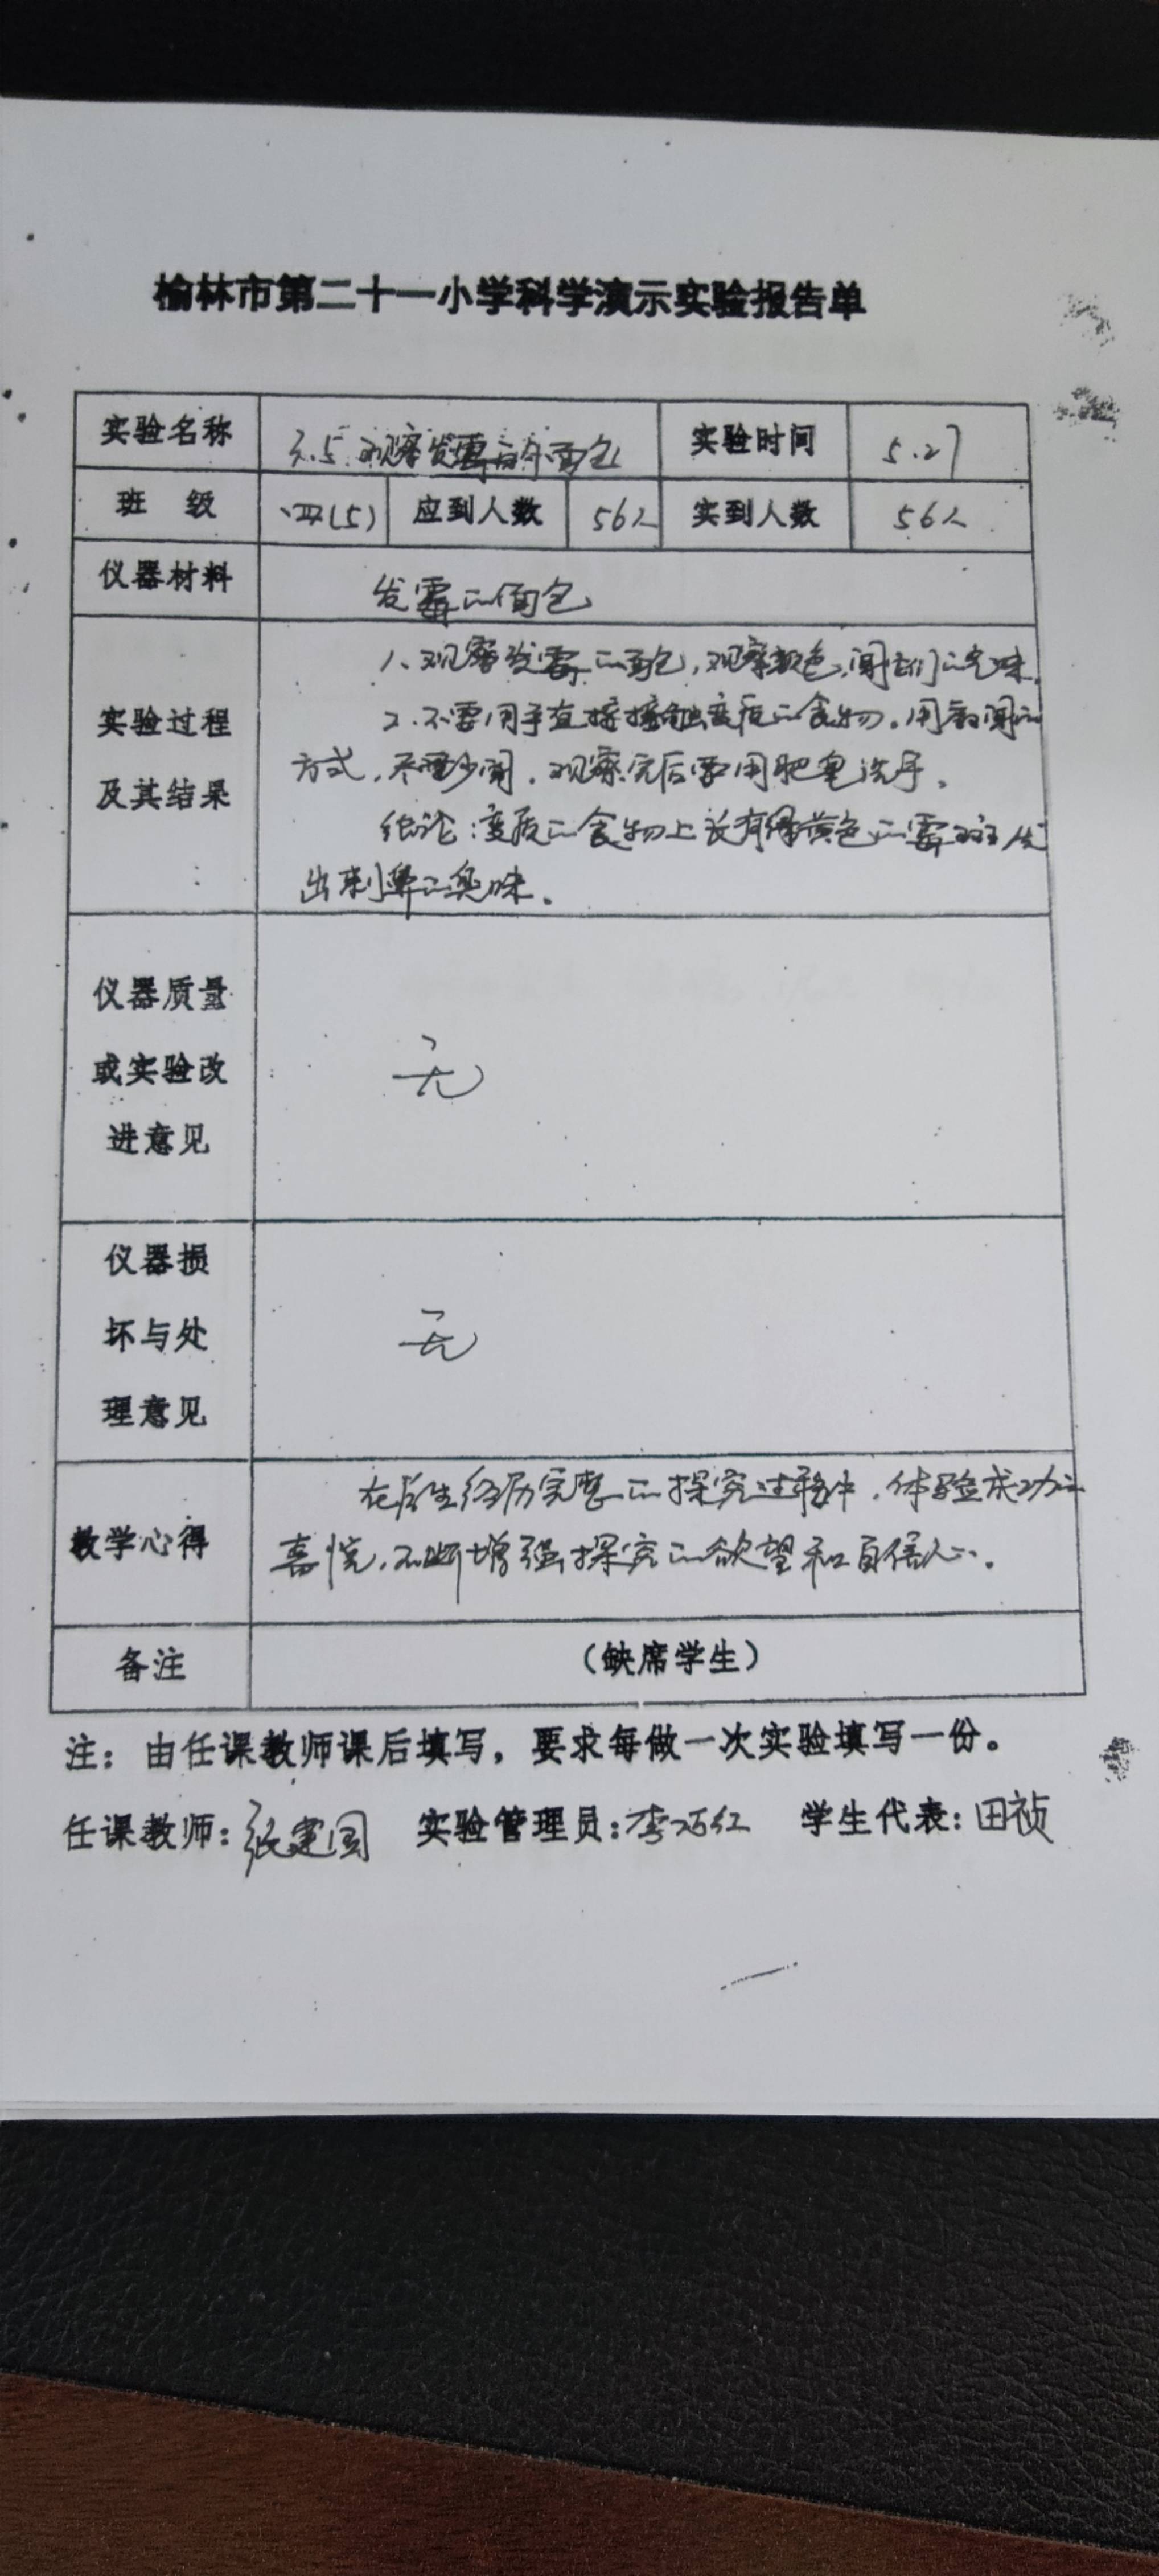 榆林市第二十一小学科学演示实验报告单
实验名称 3.5 观察发霉的面包 实验时间 5.27
班 级 四(5) 应到人数 56人 实到人数 56人
仪器材料 发霉的面包
1、观察发霉的面包,观察颜色,闻它们的气味。
实验过程 2、不要用手直接接触变质的食物。用扇闻的
及其结果 方式,不要多闻。观察完后要用肥皂洗手。
结论:变质的食物上长有绿黄色的霉斑,发
出刺鼻的臭味。
仪器质量
或实验改 无
进意见
仪器损
坏与处 无
理意见
在学生经历完整的探究过程中,体验成功的
教学心得 喜悦,不断增强探究的欲望和自信心。
备注 (缺席学生)
注:由任课教师课后填写,要求每做一次实验填写一份。
任课教师:张建国 实验管理员:李巧红 学生代表:田祯